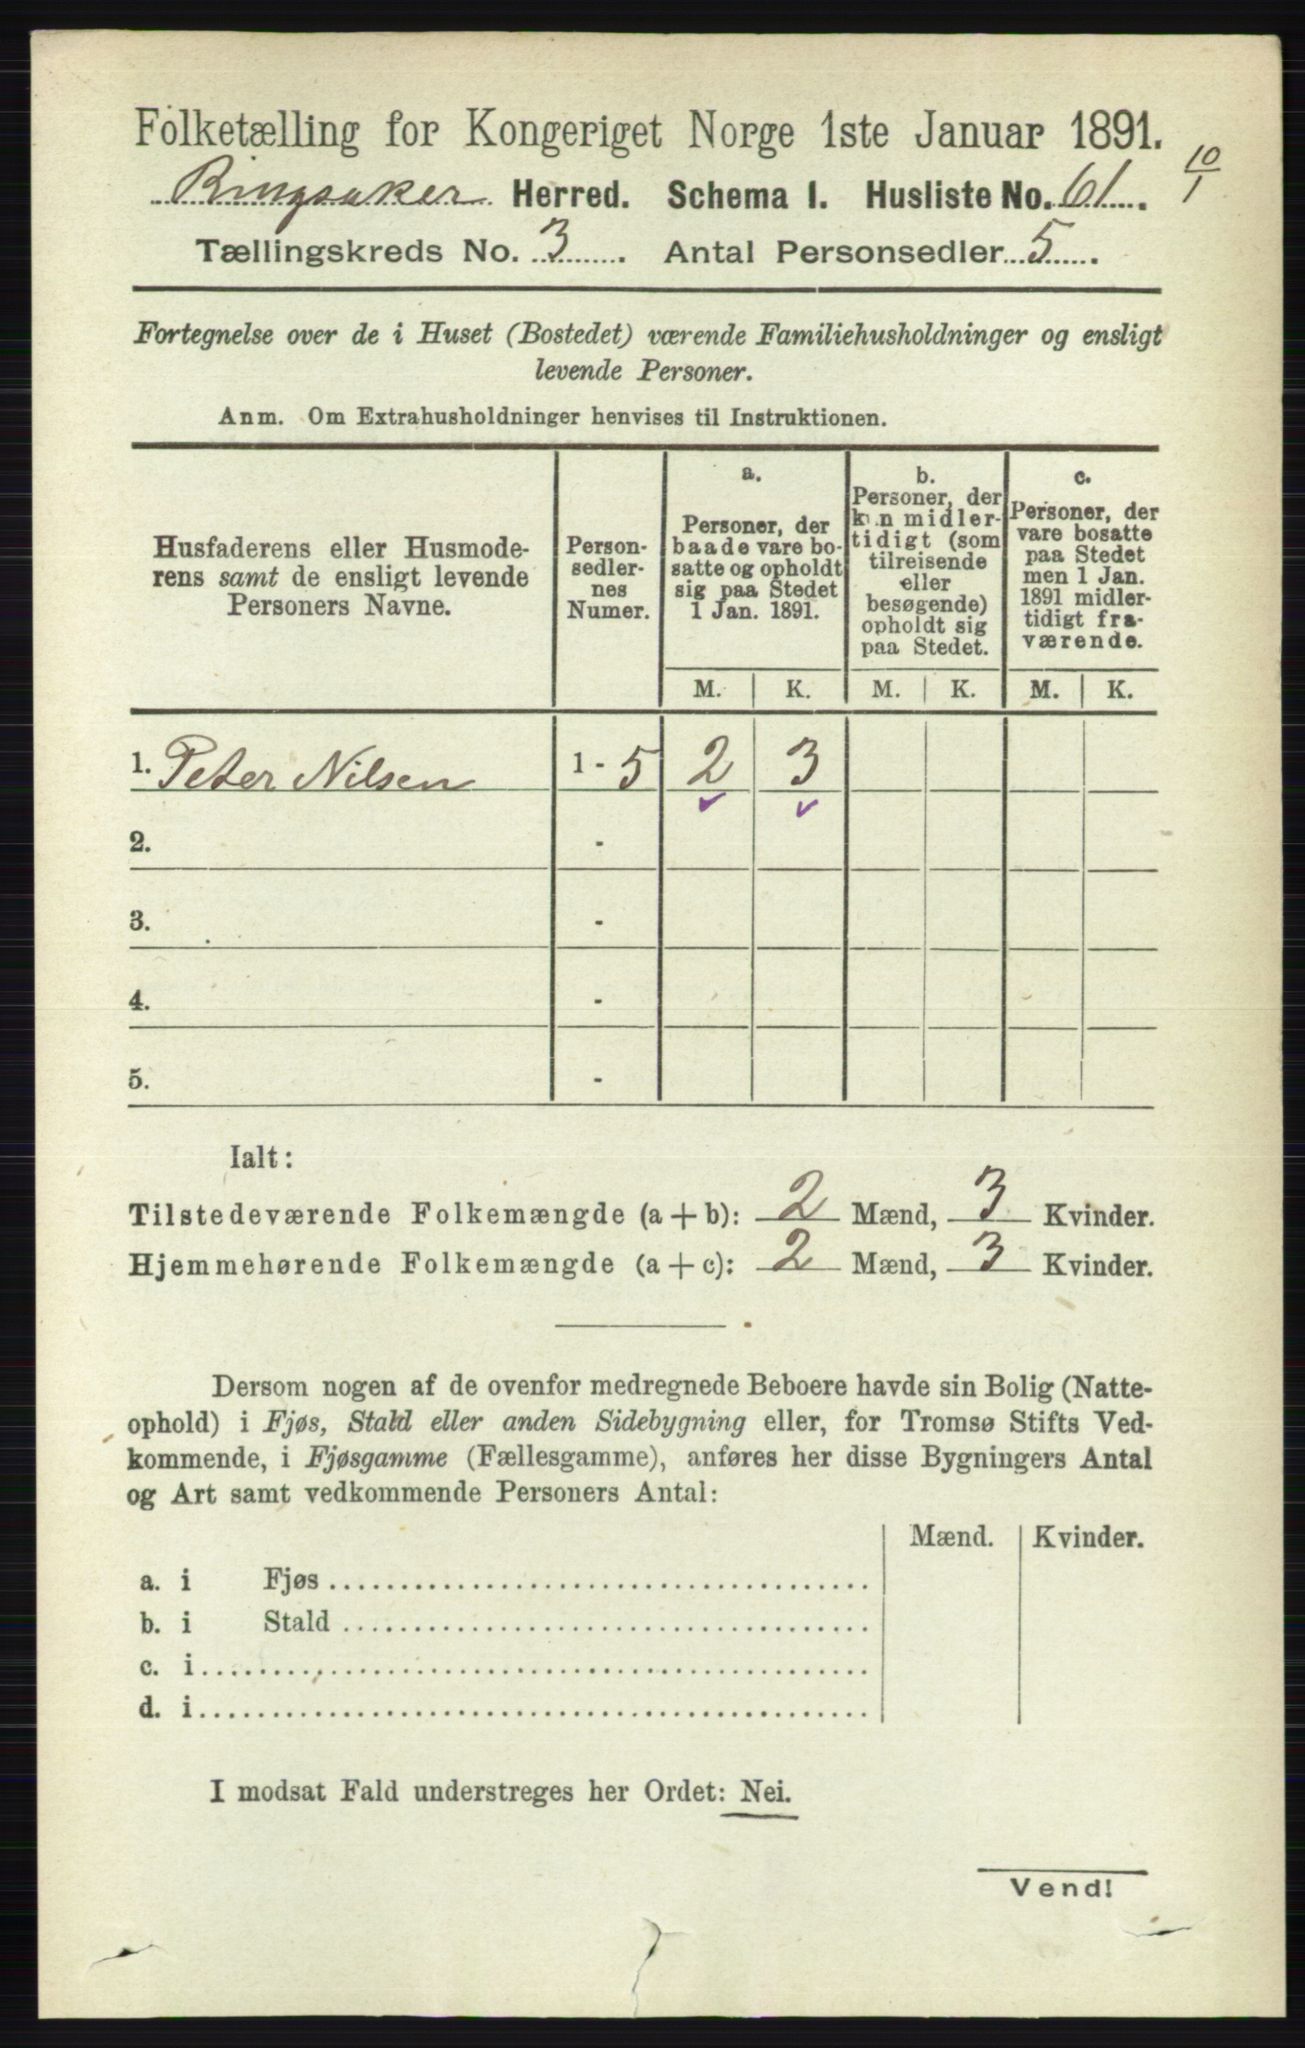 Folketælling for Kongeriget Norge 1ste Januar 1891.
Ringsaker Herred. Schema I. Husliste No. 61.
10/1
Tællingskreds No. 3. Antal Personsedler 5.
Fortegnelse over de i Huset (Bostedet) værende Familiehusholdninger og ensligt
levende Personer.
Anm. Om Extrahusholdninger henvises til Instruktionen.
Husfaderens eller Husmode-
rens samt de ensligt levende
Personers Navne.
Person-
sedler-
nes
Numer.
a.
Personer, der
baade vare bo-
satte og opholdt
sig paa Stedet
1 Jan. 1891.
b.
Personer, der
kun midler-
tidigt (som
tilreisende
eller
besøgende)
opholdt sig
paa Stedet.
c.
Personer, der
vare bosatte
paa Stedet
men 1 Jan.
1891 midler-
tidigt fra-
værende.
M. K. M. K. M. K.
1. Peter Nilsen 1 - 5 2 3
2. -
3. -
4. -
5. -
Ialt:
Tilstedeværende Folkemængde (a + b): 2 Mænd, 3 Kvinder.
Hjemmehørende Folkemængde (a + c): 2 Mænd, 3 Kvinder.
Dersom nogen af de ovenfor medregnede Beboere havde sin Bolig (Natte-
ophold) i Fjøs, Stald eller anden Sidebygning eller, for Tromsø Stifts Ved-
kommende, i Fjøsgamme (Fællesgamme), anføres her disse Bygningers Antal
og Art samt vedkommende Personers Antal:
Mænd. Kvinder.
a. i Fjøs
b. i Stald
c. i
d. i
I modsat Fald understreges her Ordet: Nei.
Vend!